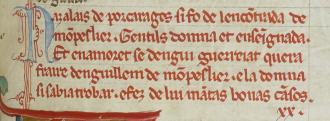 NAlais de porcaragues si fo de lencontrada de
mōpeslier. Gentils domna et enseignada.
Et enamoret se dengui guerreiat quera
fraire denguillem de mōpeslier. e la domna
si sabia trobar. e fez de lui māntas bonas cāsos.
XX.